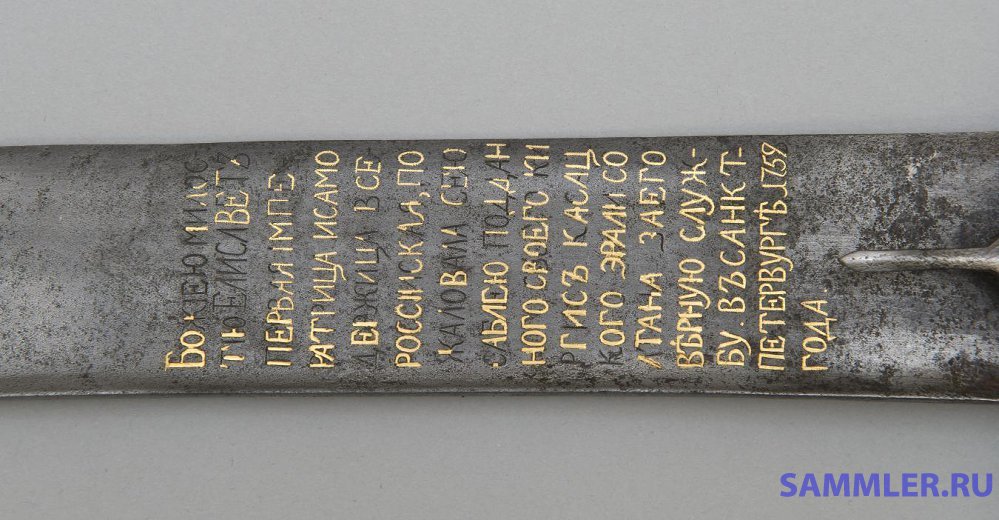 БОЖІЕЮ МИЛОС
ТІЮ ЕЛИСАВЕТЪ
ПЕРВАЯ ІМПЕ
РАТРИЦА ИСАМО
ДЕРЖИЦА ВСЕ-
РОССИСКАЯ, ПО
ЖАЛОВАЛА СЕЮ
САБЛЕЮ ПОДДАН
НОГО СВОЕГО КИ
РГИСЪ КАСАЦ
КОГО ЭРАЛИ СО
ЛТАНА ЗАЕГО
ВѢРНУЮ СЛУЖ-
БУ. ВЪСАНКТ-
ПЕТЕРБУРГѢ 1759
ГОДА.
SAMMLER.RU